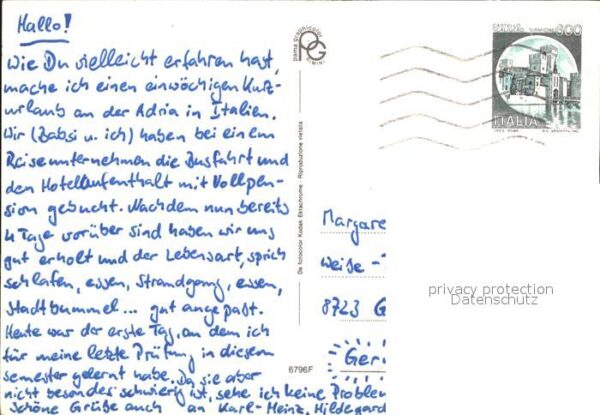 Hallo!
Wie Du vielleicht erfahren hast,
mache ich einen einwöchigen Kurz-
urlaub an der Adria in Italien.
Wir (Babsi u. ich) haben bei einem
Reiseunternehmen die Busfahrt und
den Hotelaufenthalt mit Vollpen-
sion gebucht. Nachdem nun bereits
4 Tage vorüber sind haben wir uns
gut erholt und der Lebensart, sprich
schlafen, essen, Strandgang, essen,
Stadtbummel... gut angepaßt.
Heute war der erste Tag, an dem ich
für meine letzte Prüfung in diesem
semester gelernt habe. Da sie aber
nicht besonders schwierig ist, sehe ich keine Problem
Schöne Grüße auch an Karl-Heinz, Hildegard
pama graphicolor
PG
RIMINI
De fotocolor Kodak Ektachrome - Riproduzione vietata
6796F
CASTELLO
SIRMIONE
600
ITALIA
Margare
Weiße-
8723 G
Ger
privacy protection
Datenschutz